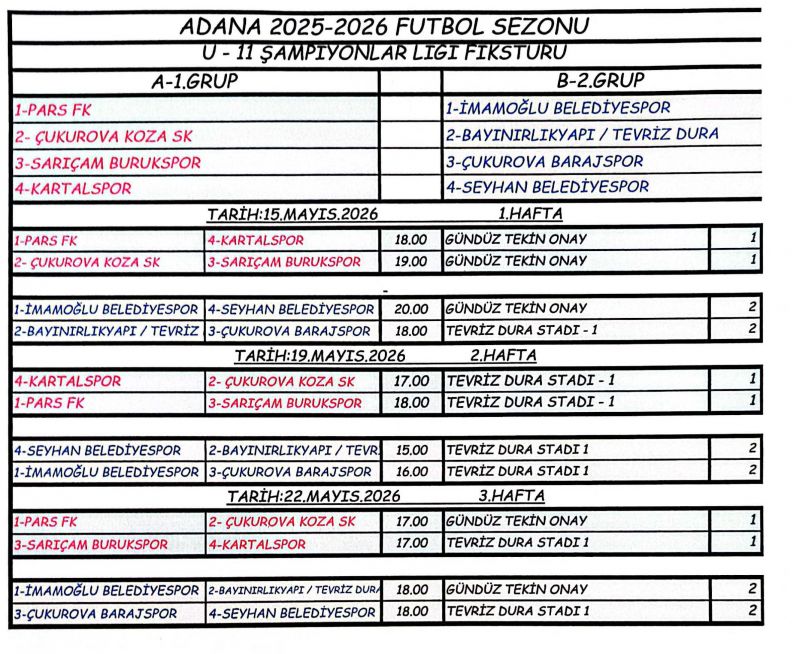 ADANA 2025-2026 FUTBOL SEZONU
U - 11 ŞAMPİYONLAR LİGİ FİKSTURU
A-1.GRUP B-2.GRUP
1-PARS FK 1-İMAMOĞLU BELEDİYESPOR
2- ÇUKUROVA KOZA SK 2-BAYINIRLIKYAPI / TEVRİZ DURA
3-SARIÇAM BURUKSPOR 3-ÇUKUROVA BARAJSPOR
4-KARTALSPOR 4-SEYHAN BELEDİYESPOR
TARİH:15.MAYIS.2026 1.HAFTA
1-PARS FK 4-KARTALSPOR 18.00 GÜNDÜZ TEKİN ONAY 1
2- ÇUKUROVA KOZA SK 3-SARIÇAM BURUKSPOR 19.00 GÜNDÜZ TEKİN ONAY 1
-
1-İMAMOĞLU BELEDİYESPOR 4-SEYHAN BELEDİYESPOR 20.00 GÜNDÜZ TEKİN ONAY 2
2-BAYINIRLIKYAPI / TEVRİZ 3-ÇUKUROVA BARAJSPOR 18.00 TEVRİZ DURA STADI - 1 2
TARİH:19.MAYIS.2026 2.HAFTA
4-KARTALSPOR 2- ÇUKUROVA KOZA SK 17.00 TEVRİZ DURA STADI - 1 1
1-PARS FK 3-SARIÇAM BURUKSPOR 18.00 TEVRİZ DURA STADI - 1 1
4-SEYHAN BELEDİYESPOR 2-BAYINIRLIKYAPI / TEVR 15.00 TEVRİZ DURA STADI 1 2
1-İMAMOĞLU BELEDİYESPOR 3-ÇUKUROVA BARAJSPOR 16.00 TEVRİZ DURA STADI 1 2
TARİH:22.MAYIS.2026 3.HAFTA
1-PARS FK 2- ÇUKUROVA KOZA SK 17.00 GÜNDÜZ TEKİN ONAY 1
3-SARIÇAM BURUKSPOR 4-KARTALSPOR 17.00 TEVRİZ DURA STADI 1 1
1-İMAMOĞLU BELEDİYESPOR 2-BAYINIRLIKYAPI / TEVRİZ DURA 18.00 GÜNDÜZ TEKİN ONAY 2
3-ÇUKUROVA BARAJSPOR 4-SEYHAN BELEDİYESPOR 18.00 TEVRİZ DURA STADI 1 2